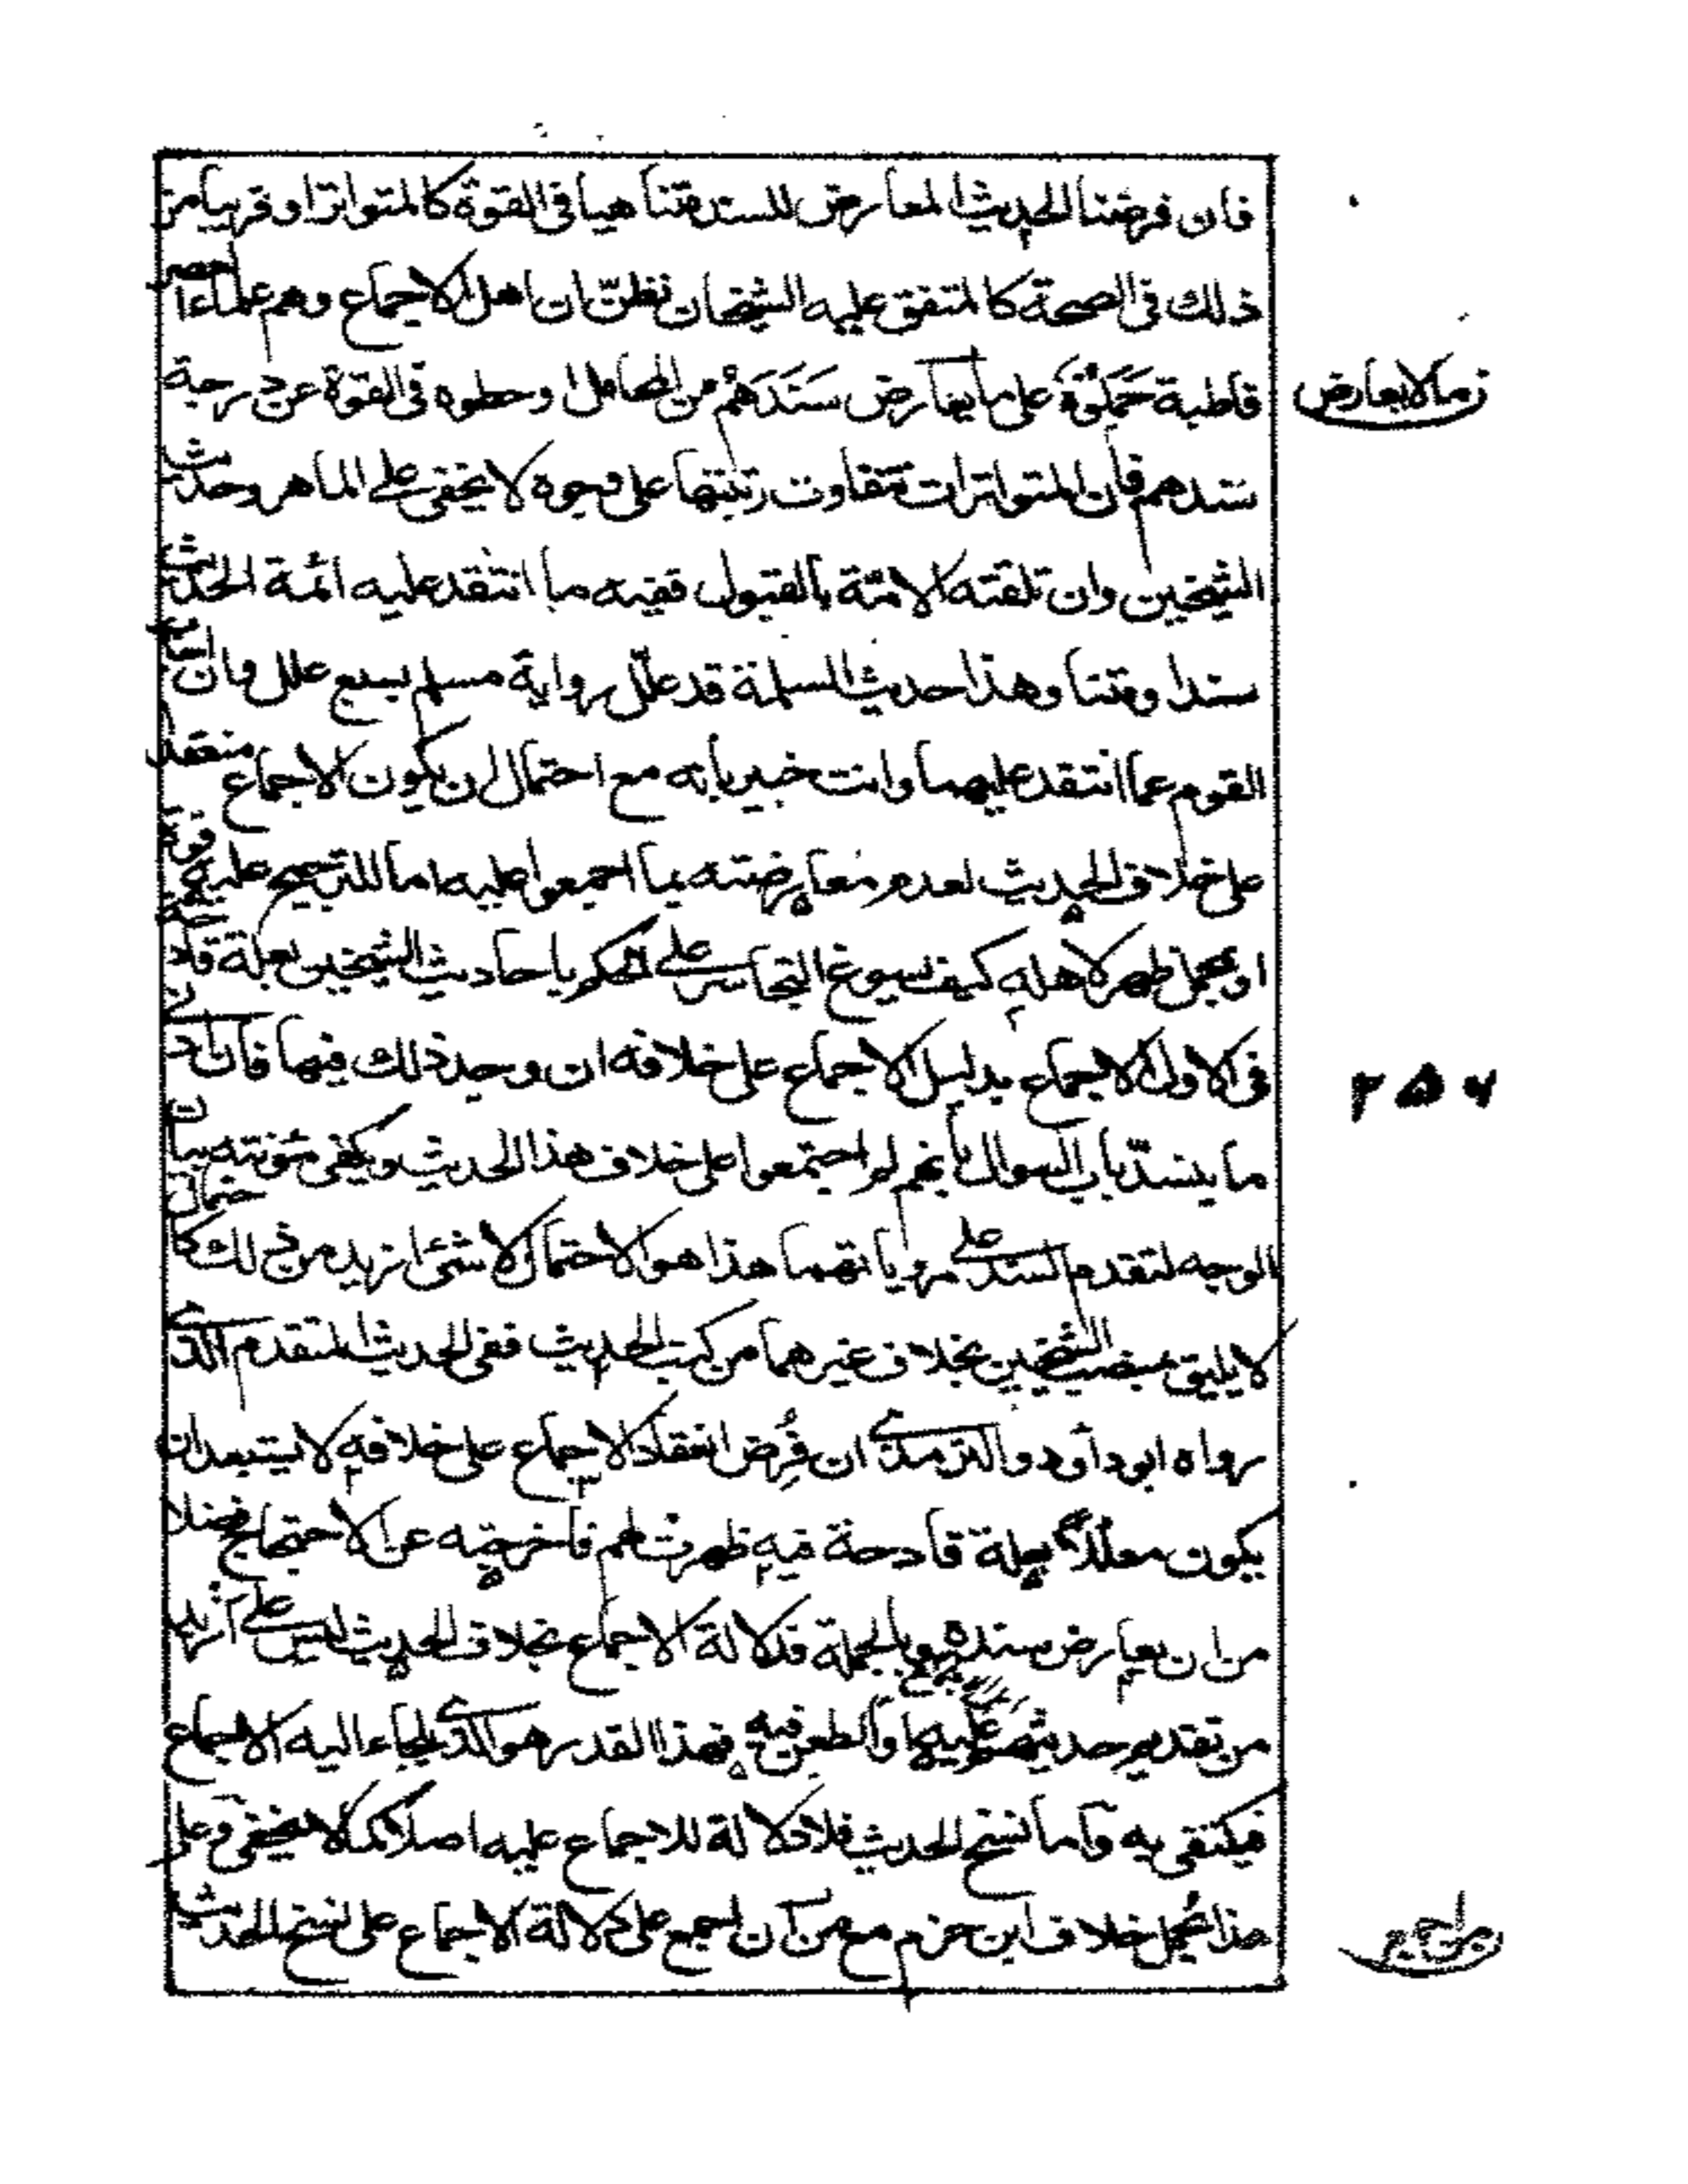 فان فرضنا الحديث المعارض للسند متناهيا فى القوة كالمتواتر او قريبا من
ذلك فى الصحة كالمتفق عليه الشيخان نظن ان اهل الاجماع وهم علماء العصر
قاطبة حملوه على ما يعارض سندهم من المحامل او حطوه فى القوة عن درجة
سندهم فان المتواترات تتفاوت رتبتها على وجوه لا يخفى على الماهر وحديث
الشيخين وان تلقته الامة بالقبول ففيه ما انتقد عليه ائمة الحديث
سندا ومتنا وهذا حديث السلمة قد علل رواية مسلم بسبع علل وان اجاب
القوم عما انتقد عليهما وانت خبير بانه مع احتمال ان يكون الاجماع منعقدا
على خلاف الحديث لعدم معارضته بما اجمعوا عليه اما للترجيح عليه قوة
او بمحمل ظهر لاهله كيف يسوغ التجاسر على الحكم باحاديث الشيخين بعلة قادحة
فى الاول الاجماع بدليل الاجماع على خلافه ان وجد ذلك فيها فان ادنى
ما ينسد باب السوال بانهم لم اجتمعوا على خلاف هذا الحديث ويكفى مئونته بيان
الوجه لتقدم السند على مروياتهما هذا هو الاحتمال لا شئ ازيد من ذلك كما
لا يليق بمنصب الشيخين بخلاف غيرهما من كتب الحديث ففى الحديث المتقدم الذى
رواه ابو داود والترمذى ان فرض انعقاد الاجماع على خلافه لا يستبعد ان
يكون معللا بعلة قادحة فيه ظهرت لهم فاخرجته عن الاحتجاج فضلا
من ان يعارض سنده وبالجملة فدلالة الاجماع بخلاف الحديث ليس على ازيد
من تقديم حديثهم عليها والطعن فيه فهذا القدر هو الذى يلجاء اليه الاجماع
فيكتفى به واما نسخ الحديث فلا دلالة للاجماع عليه اصلا كما لا يخفى وعلى
هذا يحمل خلاف ابن حزم مع من ان اجمع على دلالة الاجماع على نسخ الحديث
زما لا يعارض
٢٥٦